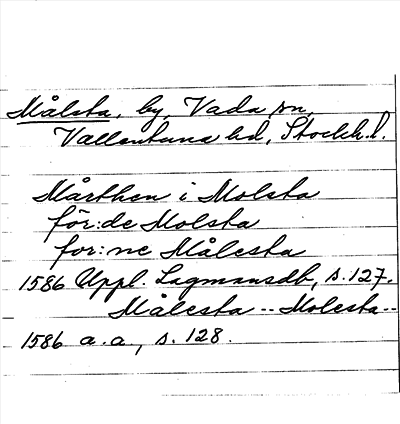 Målsta, by, Vada sn,
Vallentuna hd, Stockh.l.
Mårthen i Molsta
för:de Molsta
for:ne Målesta
1586 Uppl. Lagmansdb, s. 127.
Målesta -- Molesta --
1586 a.a, s. 128.